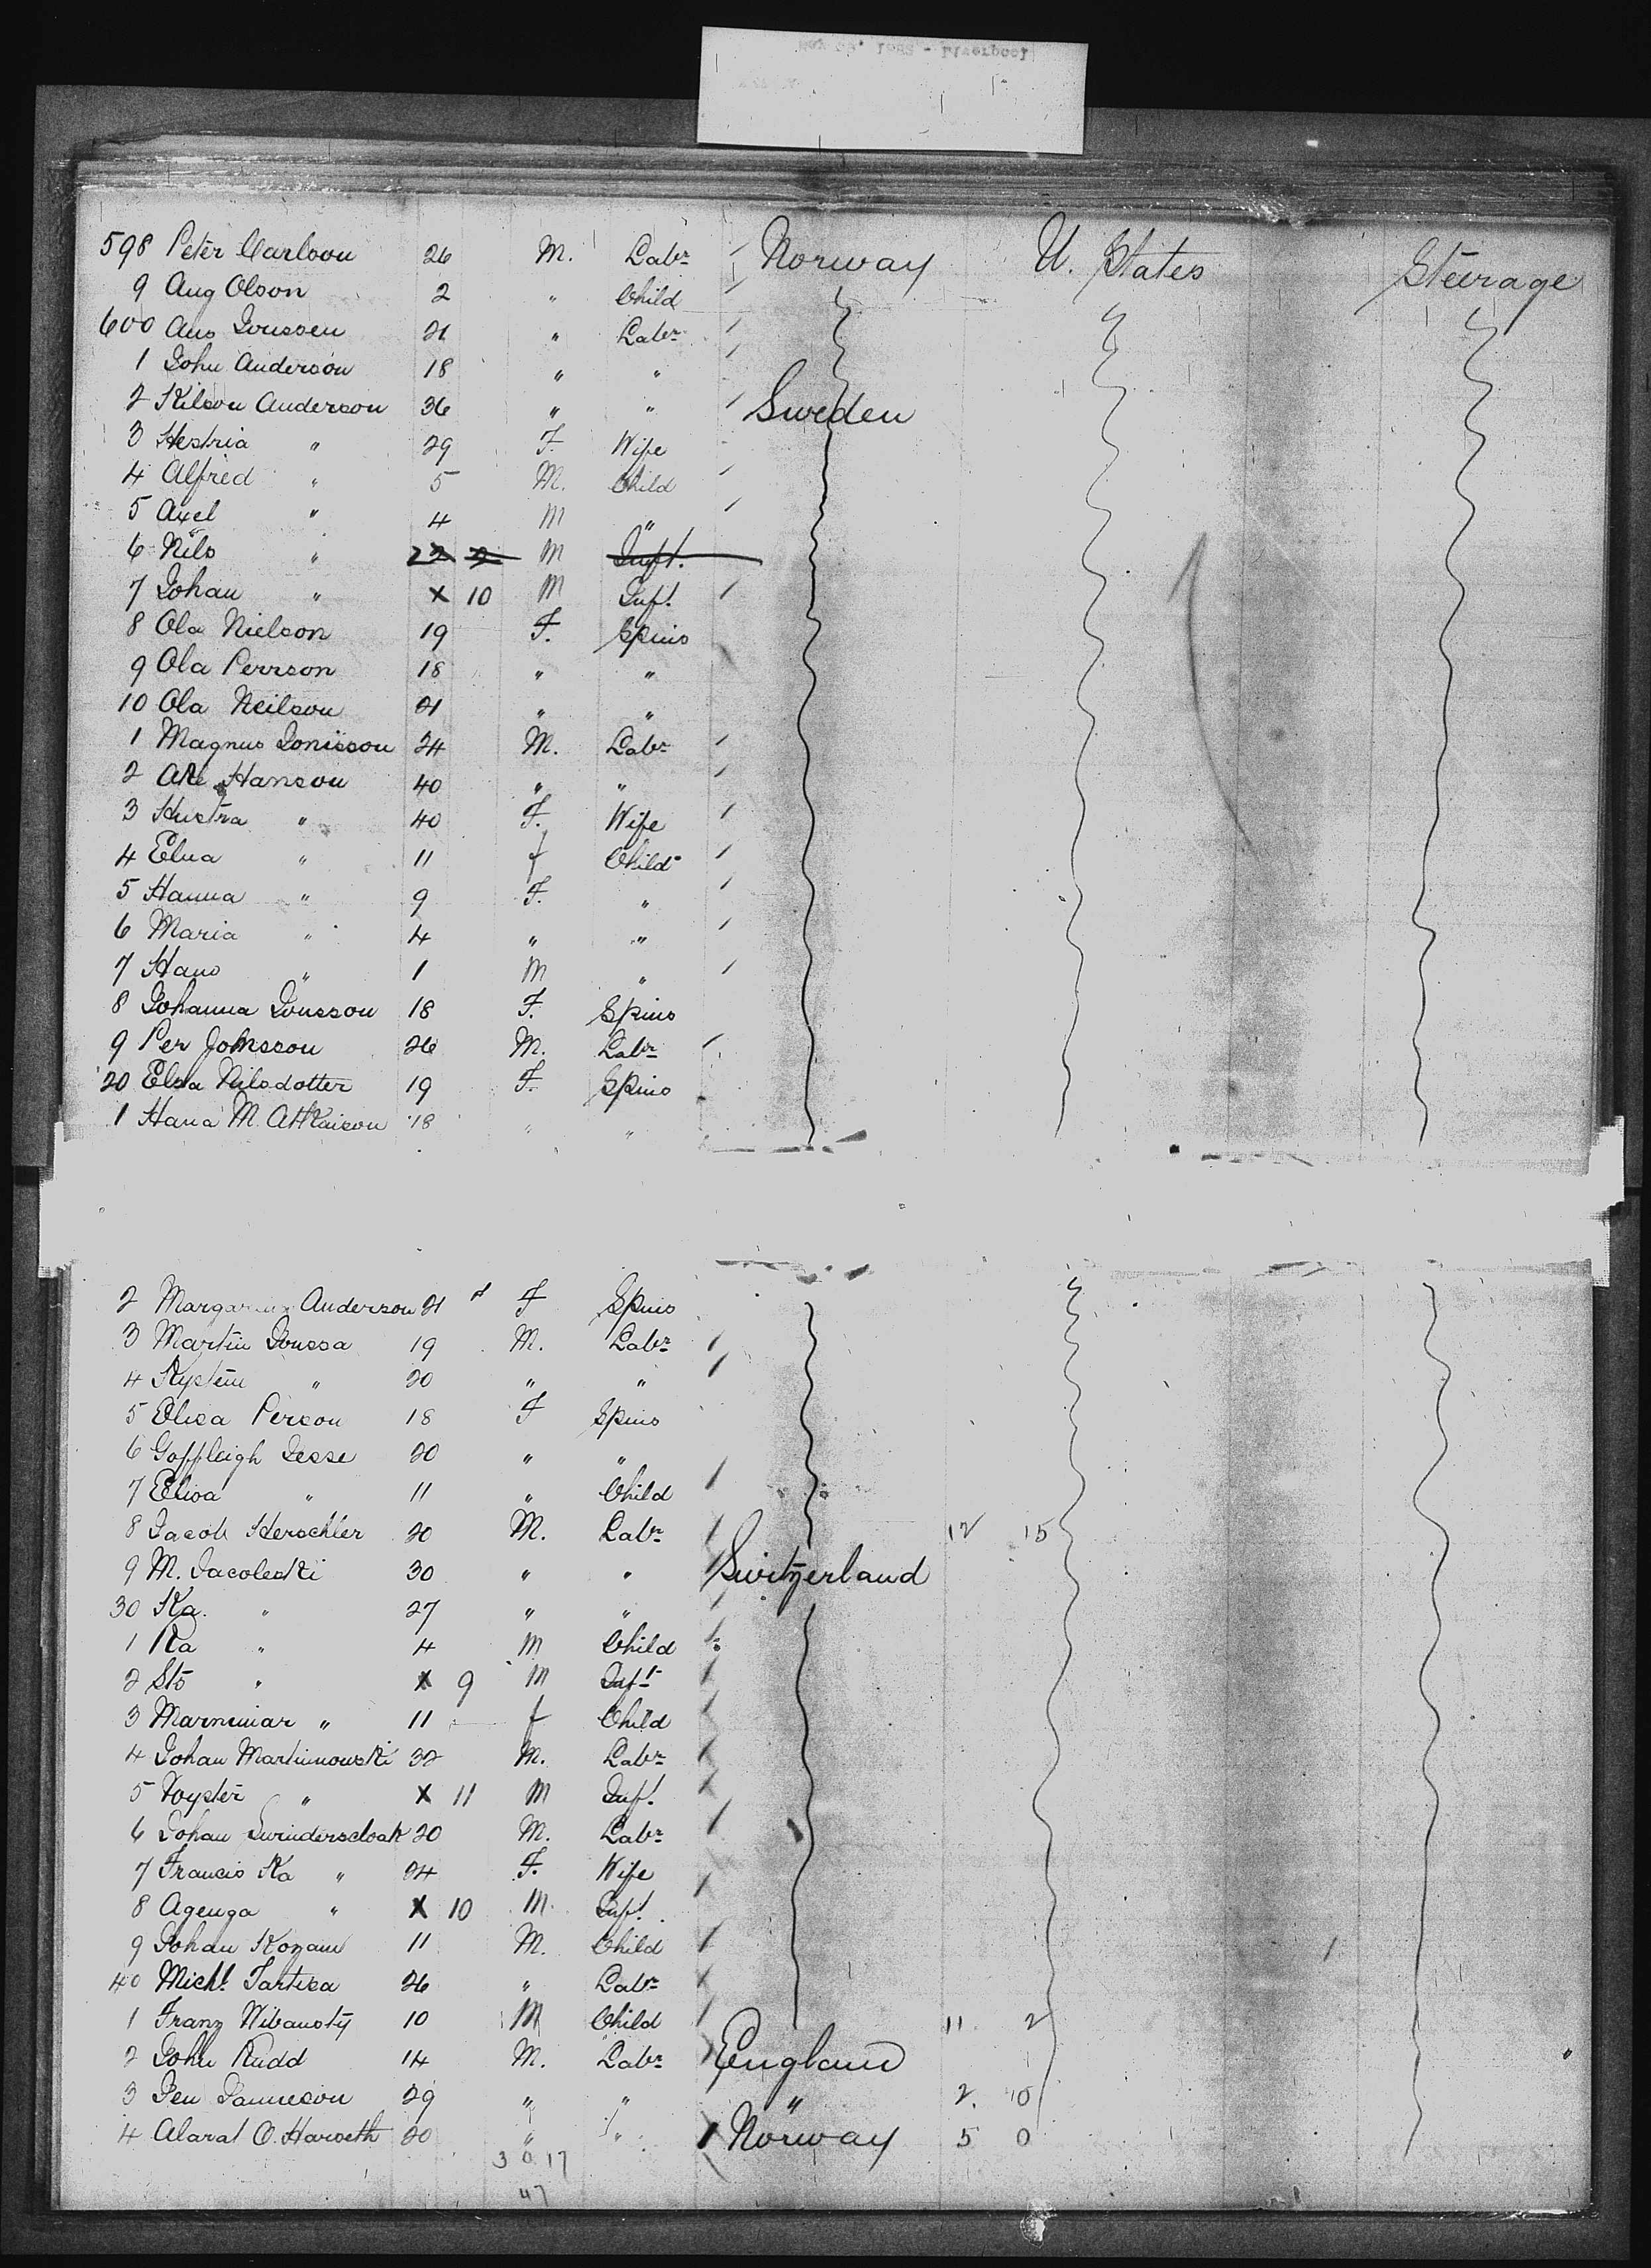 598 Peter Carlson 26 M. Labr Norway U. States Steerage
9 Aug Olson 2 " Child
600 Aus Jonssen 21 " Labr
1 John Anderson 18 " "
2 Kilson Anderson 36 " " Sweden
3 Hestria " 29 F. Wife
4 Alfred " 5 M. Child
5 Axel " 4 M "
6 Nils " M Inft.
7 Johan " X 10 M Inft.
8 Ola Nielson 19 F. Spins
9 Ola Perrson 18 " "
10 Ola Neilson 21 " "
1 Magnus Jonisson 24 M. Labr
2 Ake Hanson 40 " "
3 Hustra " 40 F. Wife
4 Elna " 11 f Child
5 Hanna " 9 F. "
6 Maria " 4 " "
7 Hans " 1 M "
8 Johanna Jonsson 18 F. Spins
9 Per Johnsson 26 M. Labr
20 Elsa Nilsdotter 19 F. Spins
1 Hana M. 18 " "
2 Anderson 21 F Spins
3 Martin Jonssa 19 M. Labr
4 " 20 " "
5 Elisa Person 18 F Spins
6 Goffleigh Jesse 20 " "
7 Elisa " 11 " Child
8 Jacob Herschler 20 M. Labr 12 15
9 M. Jacoleski 30 " " Switzerland
30 Ka. " 27 " "
1 Ka " 4 M Child
2 Sto " X 9 M Inft
3 Marnimar " 11 f Child
4 Johan Martinnowski 32 M. Labr
5 " X 11 M Inft.
6 Johan 20 M. Labr
7 Francis Ka " 24 F. Wife
8 Agenga " X 10 M. Inft.
9 Johan Kozam 11 M. Child
40 Michl. Tartisa 26 " Labr
1 Franz 10 M Child 11 2
2 John Rudd 14 M. Labr England
3 Jen Jannieson 29 " " " 2. 10
4 O. Harseth 20 " " Norway 5 0
3 0 17
47